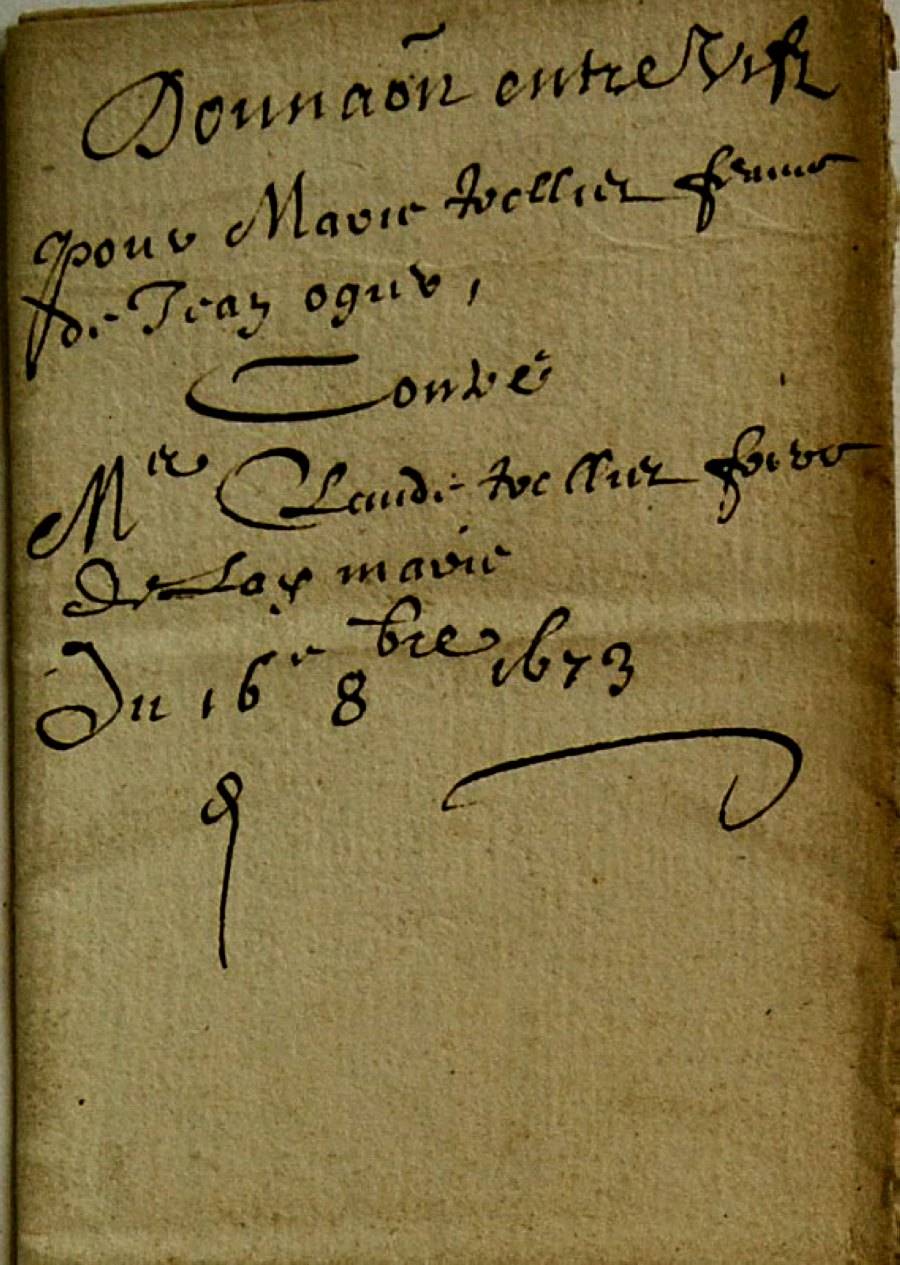 Donnaon̄ entre Vifz
pour Marie tvellier femme
de Jean ogier,
Contre
Mer Claude tvellier frere
De Lad marie
Du 16e 8bre 1673